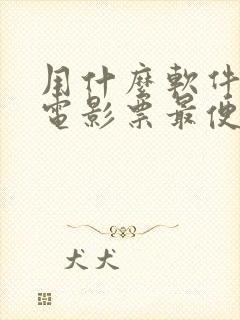 用什麼軟件
電影票最便
犬犬